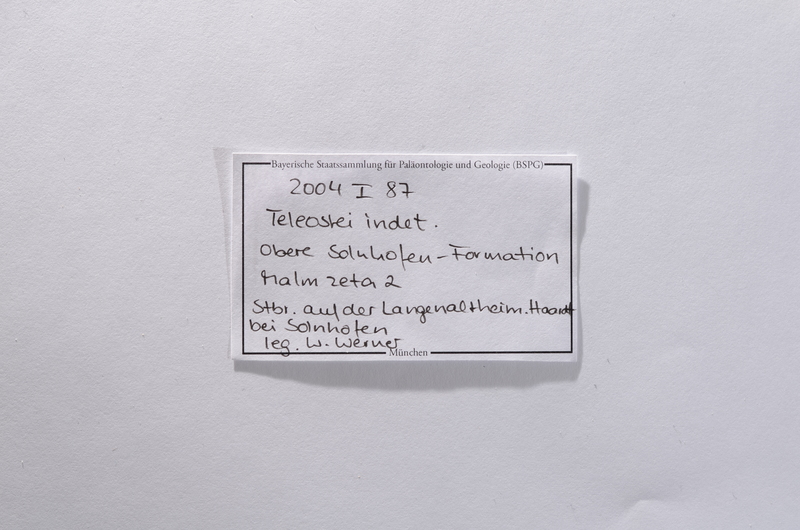 Bayerische Staatssammlung für Paläontologie und Geologie (BSPG)
2004 I 87
Teleostei indet.
Obere Solnhofen-Formation
Malm zeta 2
Stbr. auf der Langenaltheim. Haardt
bei Solnhofen
leg. W. Werner
München